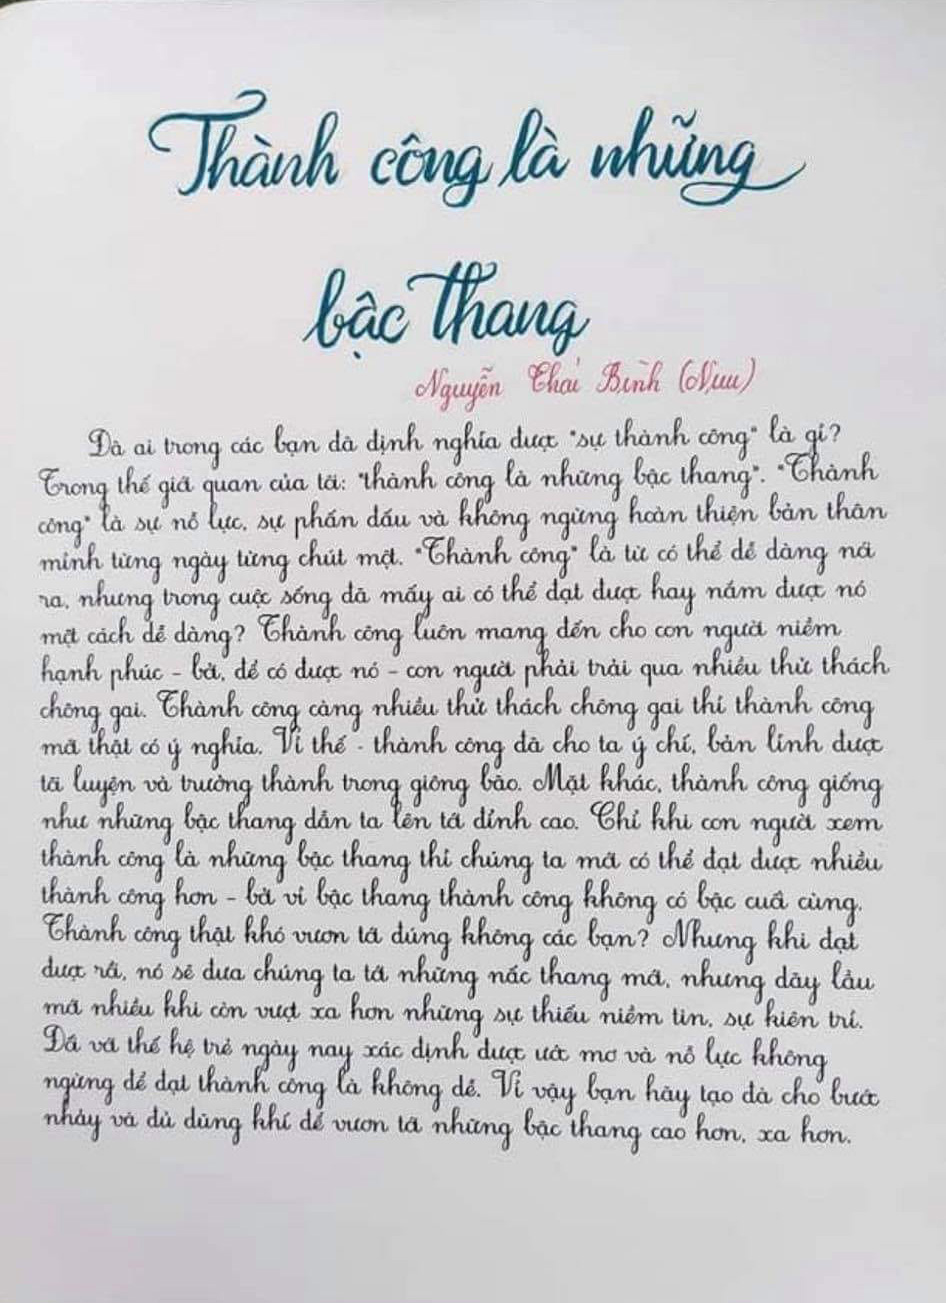 Thành công là những
bậc thang
Nguyễn Thái Bình (Nuu)
Đã ai trong các bạn đã định nghĩa được "sự thành công" là gì?
Trong thế giới quan của tôi: "thành công là những bậc thang". "Thành
công" là sự nỗ lực, sự phấn đấu và không ngừng hoàn thiện bản thân
mình từng ngày từng chút một. "Thành công" là từ có thể dễ dàng nói
ra, nhưng trong cuộc sống đã mấy ai có thể đạt được hay nắm được nó
một cách dễ dàng? Thành công luôn mang đến cho con người niềm
hạnh phúc - bởi, để có được nó - con người phải trải qua nhiều thử thách
chông gai. Thành công càng nhiều thử thách chông gai thì thành công
mới thật có ý nghĩa. Vì thế - thành công đã cho ta ý chí, bản lĩnh được
tôi luyện và trưởng thành trong giông bão. Mặt khác, thành công giống
như những bậc thang dẫn ta lên tới đỉnh cao. Chỉ khi con người xem
thành công là những bậc thang thì chúng ta mới có thể đạt được nhiều
thành công hơn - bởi vì bậc thang thành công không có bậc cuối cùng.
Thành công thật khó vươn tới đúng không các bạn? Nhưng khi đạt
được rồi, nó sẽ đưa chúng ta tới những nấc thang mới, nhưng dày lâu
mới nhiều khi còn vượt xa hơn những sự thiếu niềm tin, sự kiên trì.
Đối với thế hệ trẻ ngày nay xác định được ước mơ và nỗ lực không
ngừng để đạt thành công là không dễ. Vì vậy bạn hãy tạo đà cho bước
nhảy và đủ dũng khí để vươn tới những bậc thang cao hơn, xa hơn.